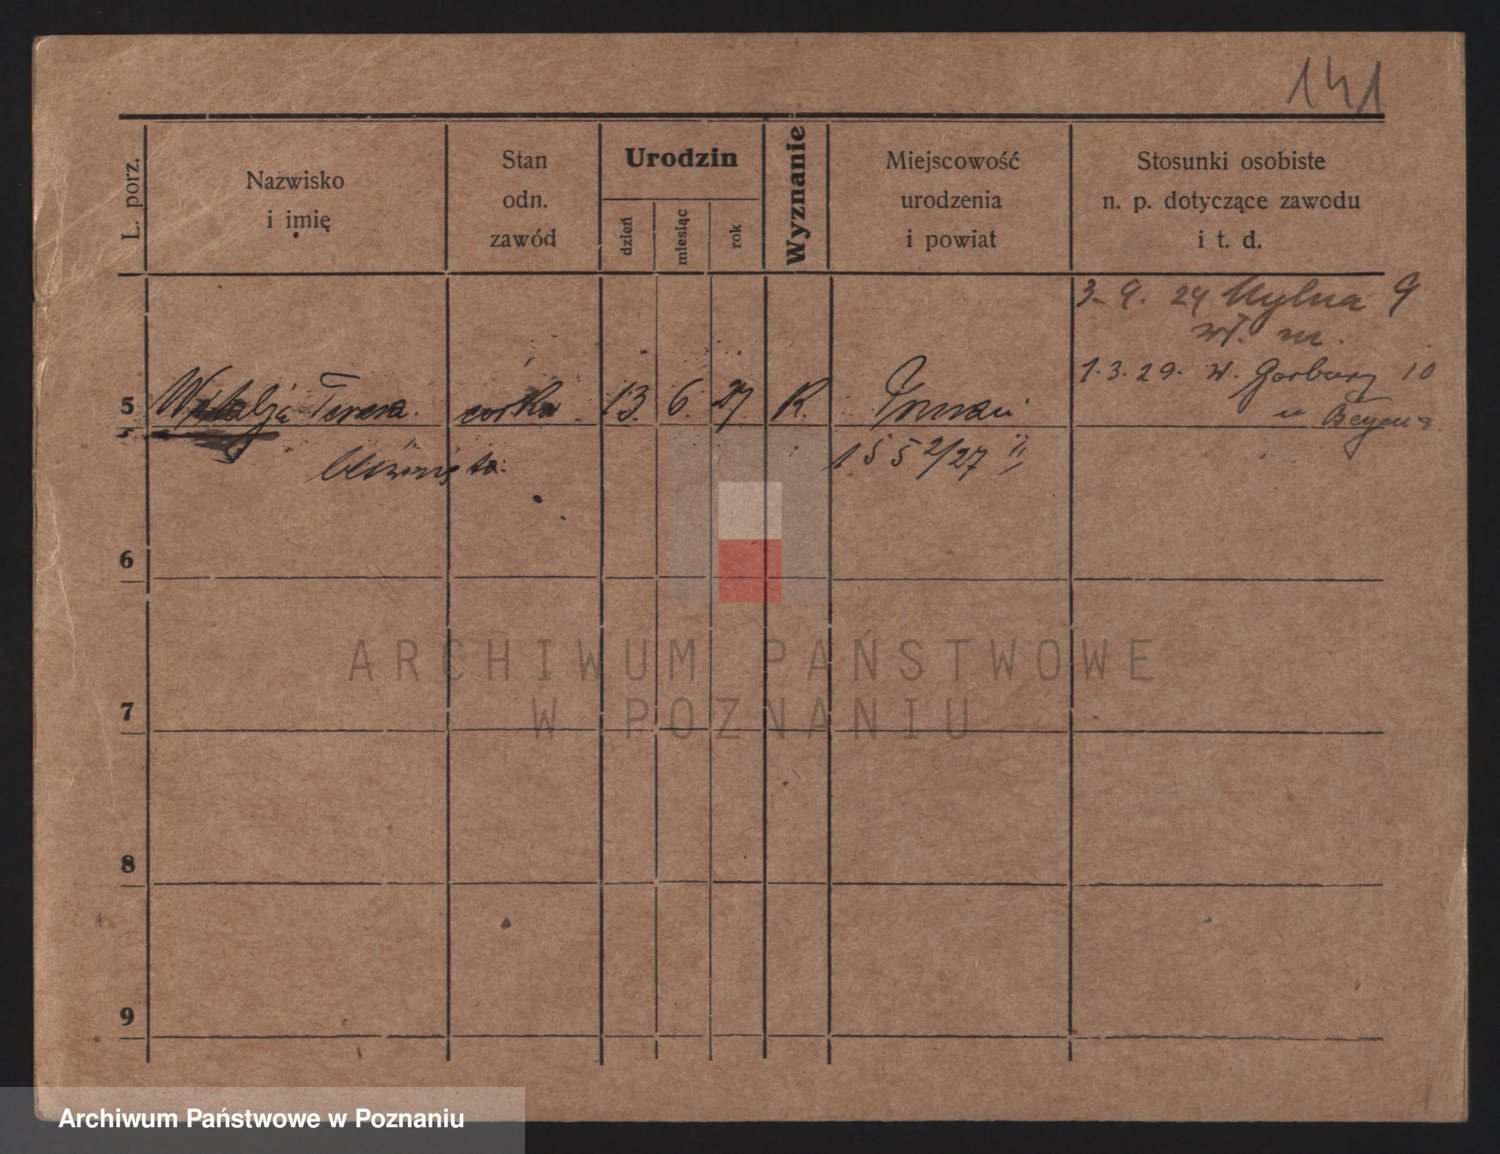 141
L. porz.
Nazwisko
i imię
Stan
odn.
zawód
Urodzin
dzień
miesiąc
rok
Wyznanie
Miejscowość
urodzenia
i powiat
Stosunki osobiste
n. p. dotyczące zawodu
i t. d.
3. 9. 29 Mylna 9
m.
1. 3. 29. W. Garbary 10
5 Teresa. córka 13. 6. 27 R. Poznań
bliźnięta: 1552/27 II
6
ARCHIWUM PAŃSTWOWE
W POZNANIU
7
8
9
Archiwum Państwowe w Poznaniu